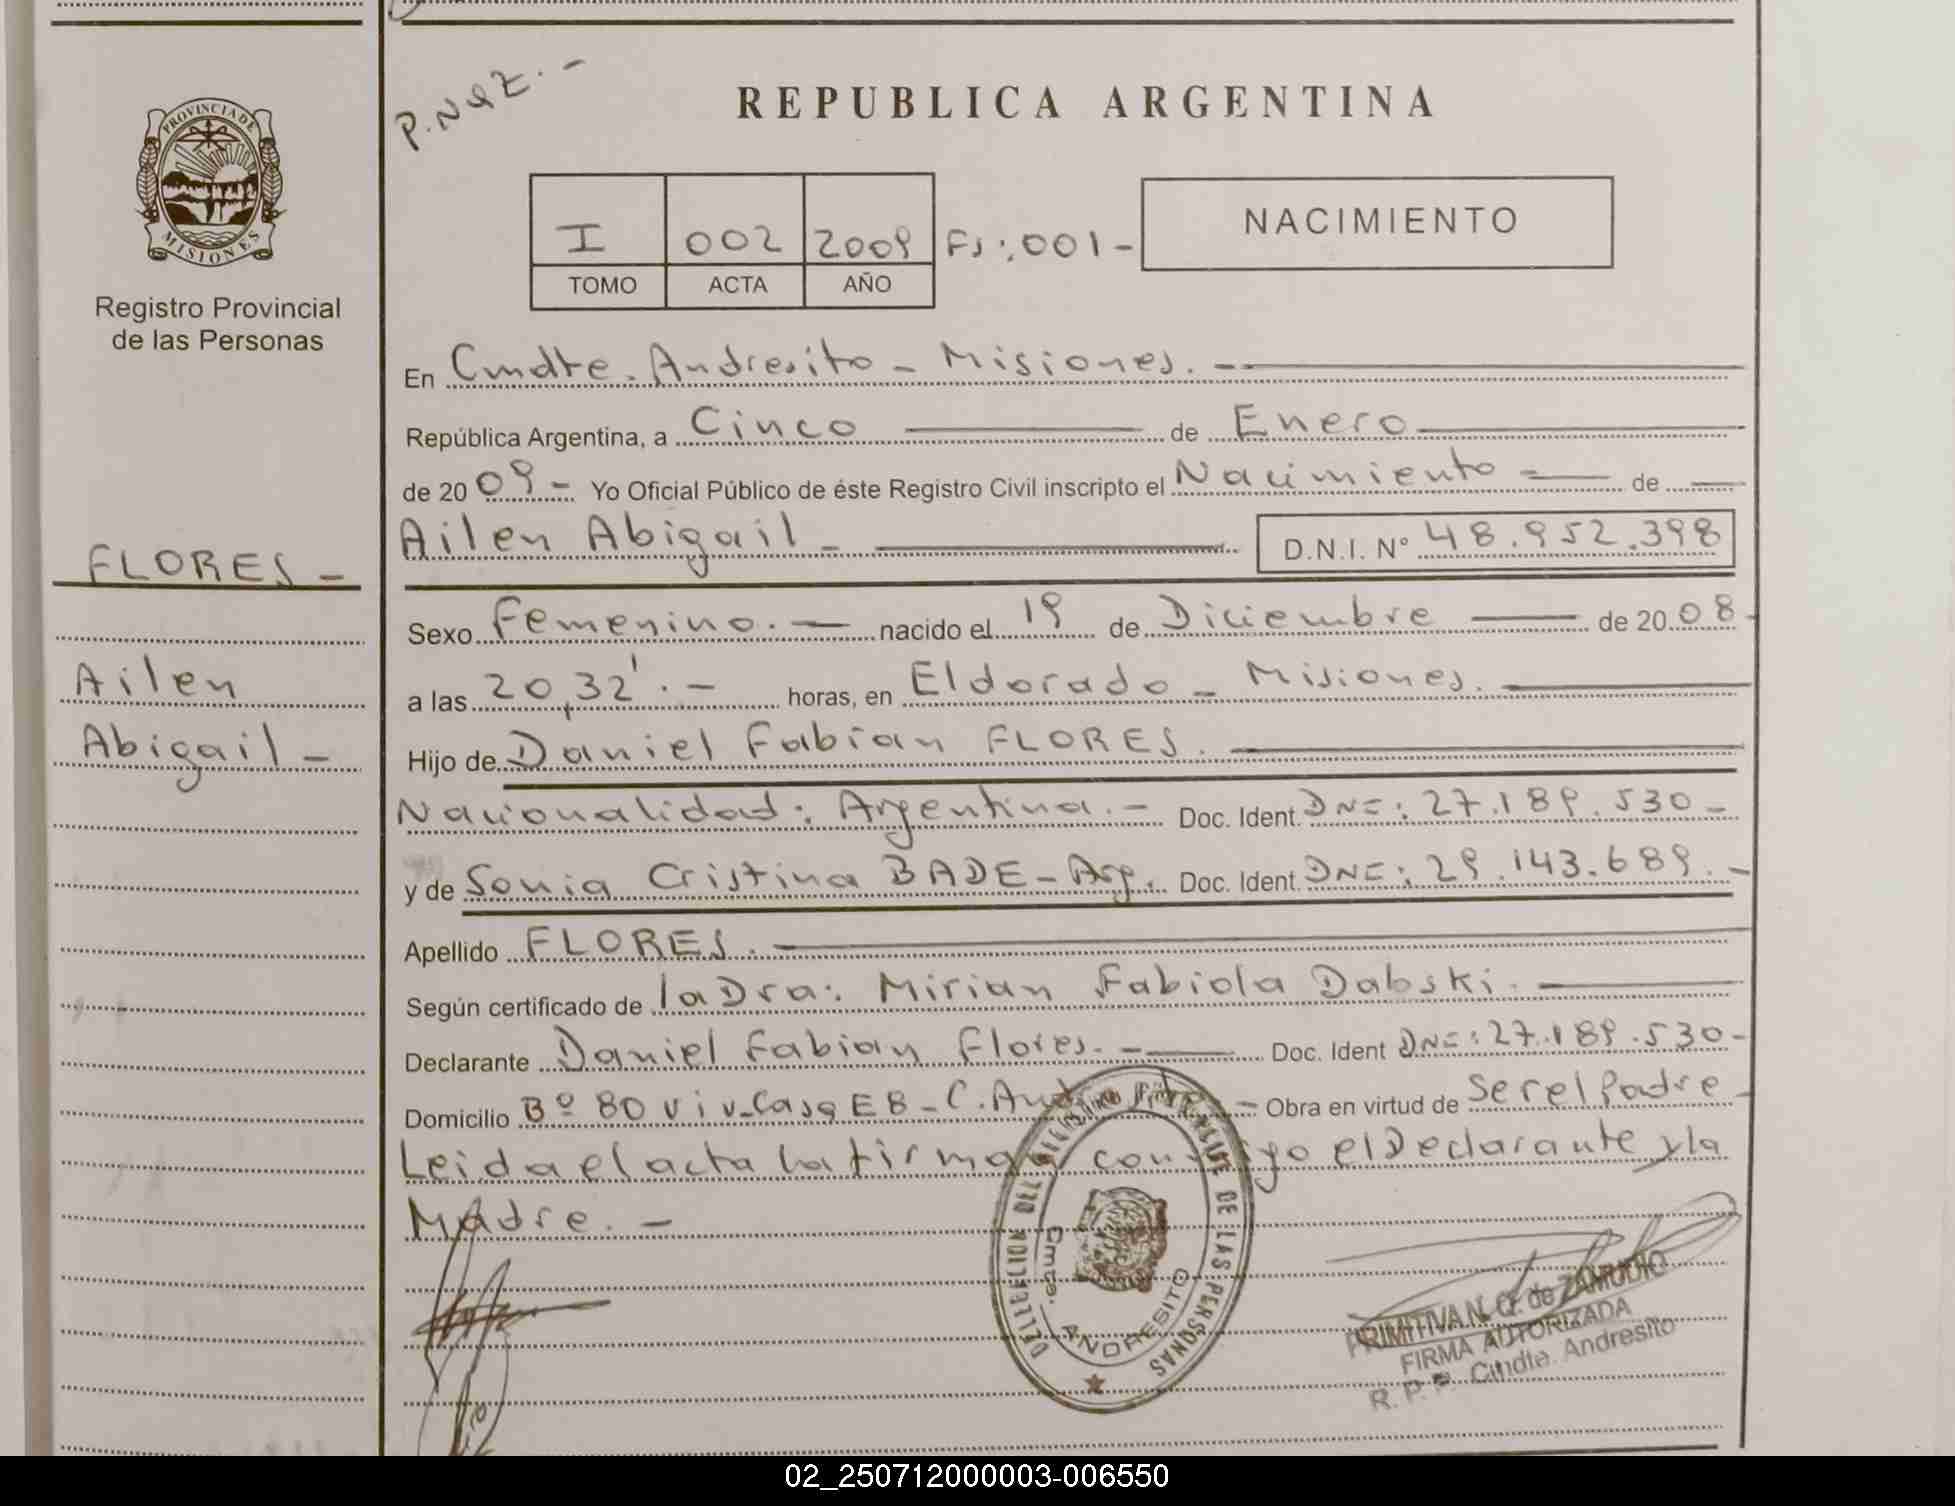 P.NQE.-
REPUBLICA ARGENTINA
PROVINCIA DE MISIONES
Registro Provincial
de las Personas
I 002 2009 FJ:.001-
TOMO ACTA AÑO
NACIMIENTO
En Cmdte. Andresito - Misiones. -
República Argentina, a Cinco de Enero
de 2009 - Yo Oficial Público de éste Registro Civil inscripto el Nacimiento = de
Ailen Abigail - D.N.I. Nº 48.952.398
FLORES -
Sexo Femenino. - nacido el 19 de Diciembre de 2008 -
Ailen
a las 20,32'. - horas, en Eldorado - Misiones.
Abigail -
Hijo de Daniel Fabian FLORES.
Nacionalidad: Argentina. - Doc. Ident. DNI: 27.189.530 -
y de Sonia Cristina BADE - Arg. Doc. Ident. DNI: 29.143.689. -
Apellido FLORES.
Según certificado de la Dra: Mirian Fabiola Dabski.
Declarante Daniel Fabian Flores. - Doc. Ident DNI: 27.189.530 -
Domicilio Bº 80 viv - Casa E8 - C. Andresito - Obra en virtud de Ser el Padre -
Leida el acta la firman conmigo el Declarante y la
Madre. -
DELEGACION DEL REGISTRO PROVINCIAL DE LAS PERSONAS
Cmte. ANDRESITO
PRIMITIVA N. G. de ZAMUDIO
FIRMA AUTORIZADA
R. P. P. Cmdte. Andresito
02_250712000003-006550